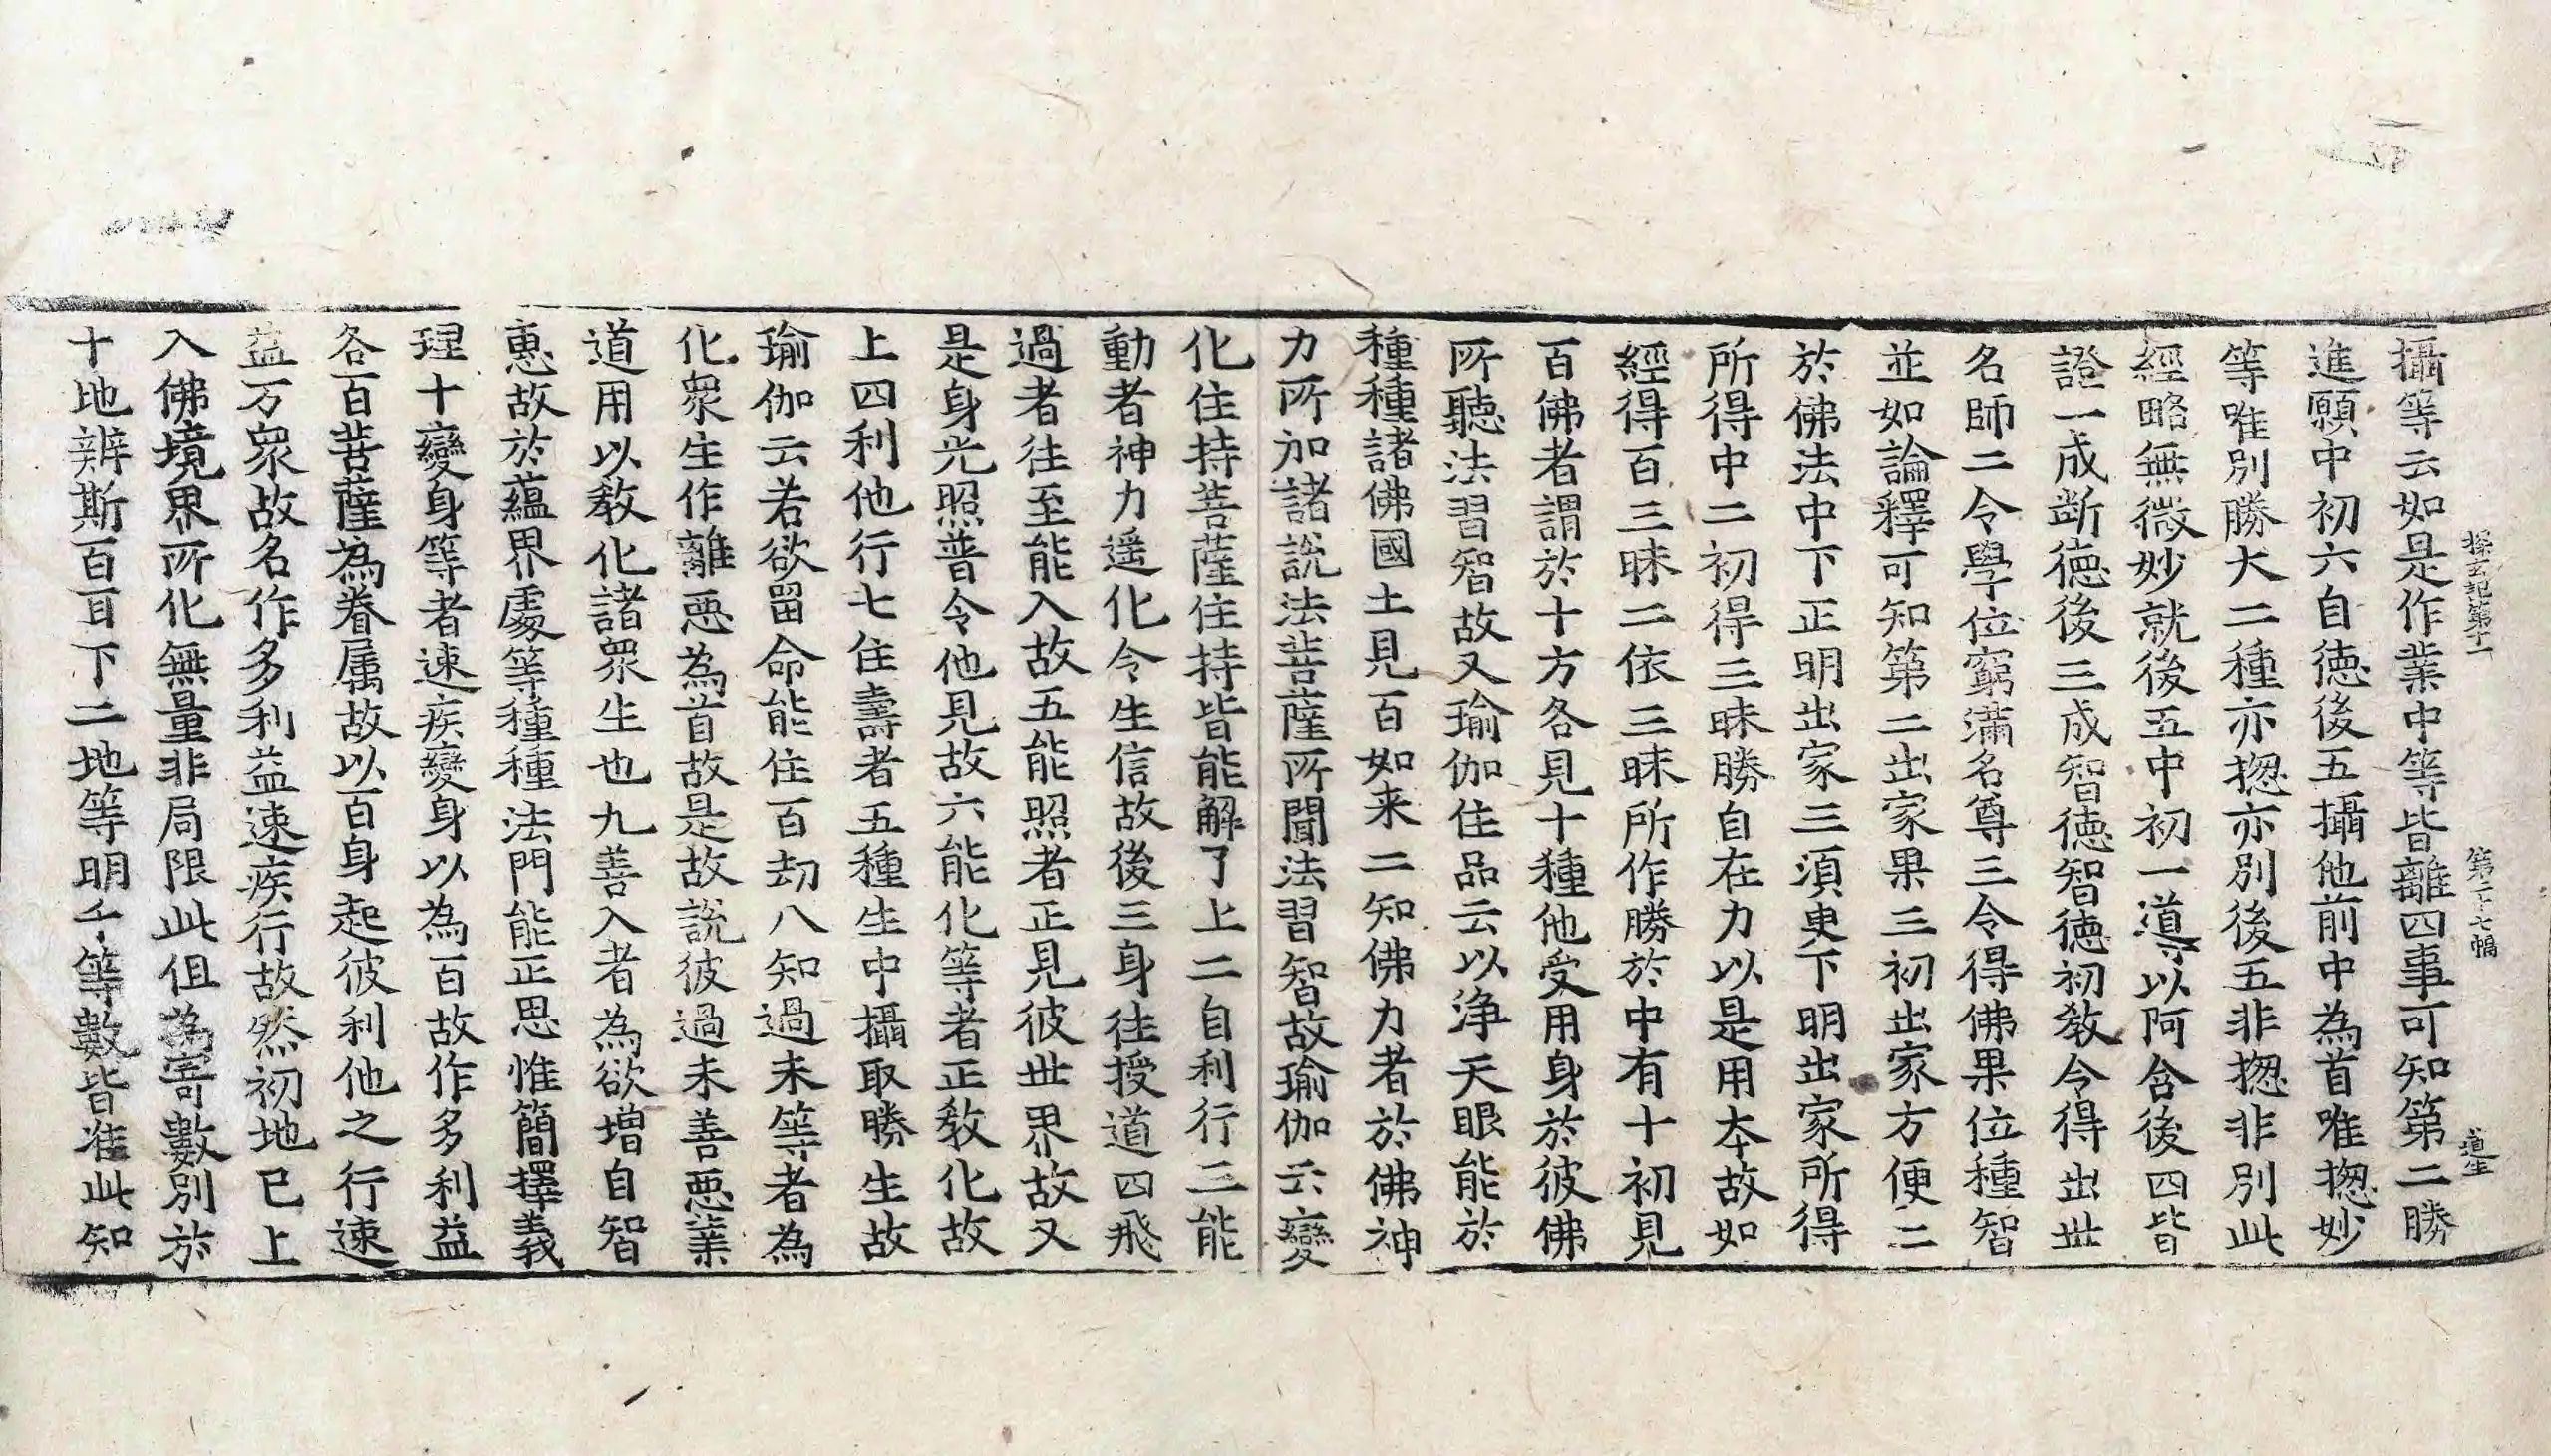 探玄記第十一　第二十七幅　道生
攝等云如是作業中等皆離四事可知第二勝
進願中初六自徳後五攝他前中為首唯揔妙
等唯別勝大二種亦揔亦別後五非揔非別此
經略無微妙就後五中初一導以阿含後四皆
證一成断徳後三成智徳智徳初教令得出世
名師二令學位窮滿名尊三令得佛果位種智
並如論釋可知第二出家果三初出家方便二
於佛法中下正明出家三湏更下明出家所得
所得中二初得三昧勝自在力以是用夲故如
經得百三昧二依三昧所作勝於中有十初見
百佛者謂於十方各見十種他受用身於彼佛
所聽法習智故又瑜伽住品云以浄天眼能於
種種諸佛國土見百如来二知佛力者於佛神
力所加諸說法菩薩所聞法習智故瑜伽云變
化住持菩薩住持皆能解了上二自利行三能
動者神力遥化令生信故後三身往授道四飛
過者往至能入故五能照者正見彼世界故又
是身光照普令他見故六能化等者正教化故
上四利他行七住壽者五種生中攝取勝生故
瑜伽云若欲留命能住百劫八知過末等者為
化衆生作離惡為首故是故說彼過未善惡業
道用以教化諸衆生也九善入者為欲增自智
惠故於蘊界處等種種法門能正思惟簡擇義
理十變身等者速疾變身以為百故作多利益
各百菩薩為眷属故以百身起彼利他之行速
益万衆故名作多利益速疾行故然初地已上
入佛境界所化無量非局限此但為寄數別於
十地辨斯百百下二地等明千等數皆准此知